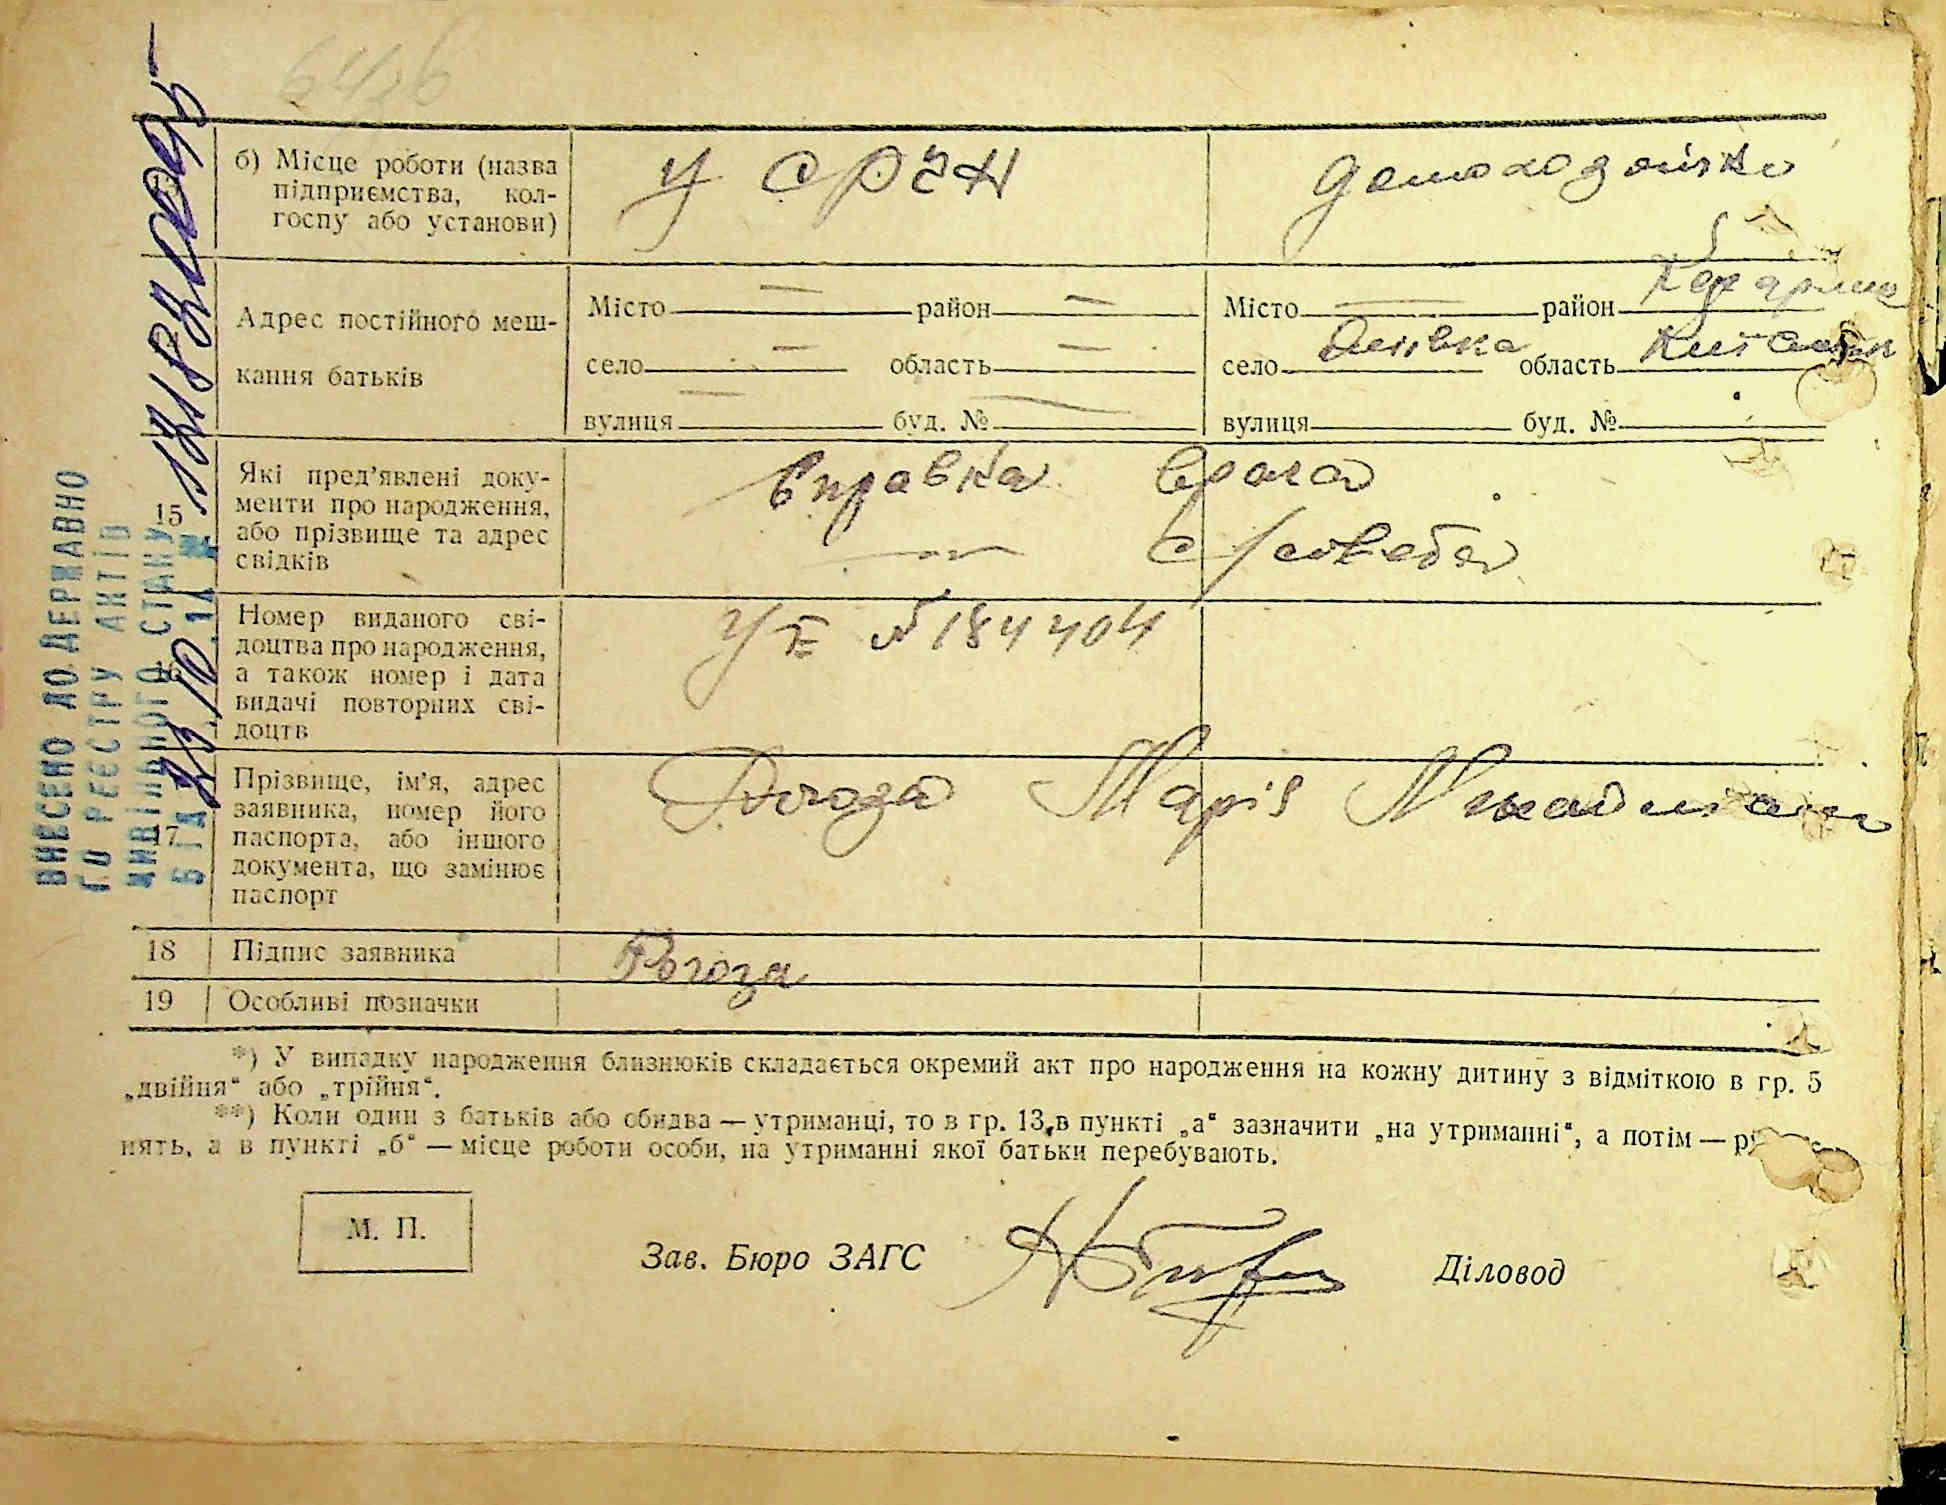 б) Місце роботи (назва
підприємства, кол-
госпу або установи)
У
домохозяйка
Адрес постійного меш-
кання батьків
Місто — район —
село — область —
вулиця — буд. № —
Місто — район
село область
вулиця буд. №
15
Які пред'явлені доку-
менти про народження,
або прізвище та адрес
свідків
Справка врача
16
Номер виданого сві-
доцтва про народження,
а також номер і дата
видачі повторних сві-
доцтв
№ 184404
17
Прізвище, ім'я, адрес
заявника, номер його
паспорта, або іншого
документа, що замінює
паспорт
Рогоза Марія
18 Підпис заявника
Рогоза
19 Особливі позначки
*) У випадку народження близнюків складається окремий акт про народження на кожну дитину з відміткою в гр. 5
„двійня“ або „трійня“.
**) Коли один з батьків або обидва — утриманці, то в гр. 13, в пункті „а“ зазначити „на утриманні“, а потім —
нять, а в пункті „б“ — місце роботи особи, на утриманні якої батьки перебувають.
М. П.
Зав. Бюро ЗАГС
Діловод
ВНЕСЕНО ДО ДЕРЖАВНО
ГО РЕЄСТРУ АКТІВ
ЦИВІЛЬНОГО СТАНУ
ВІД №